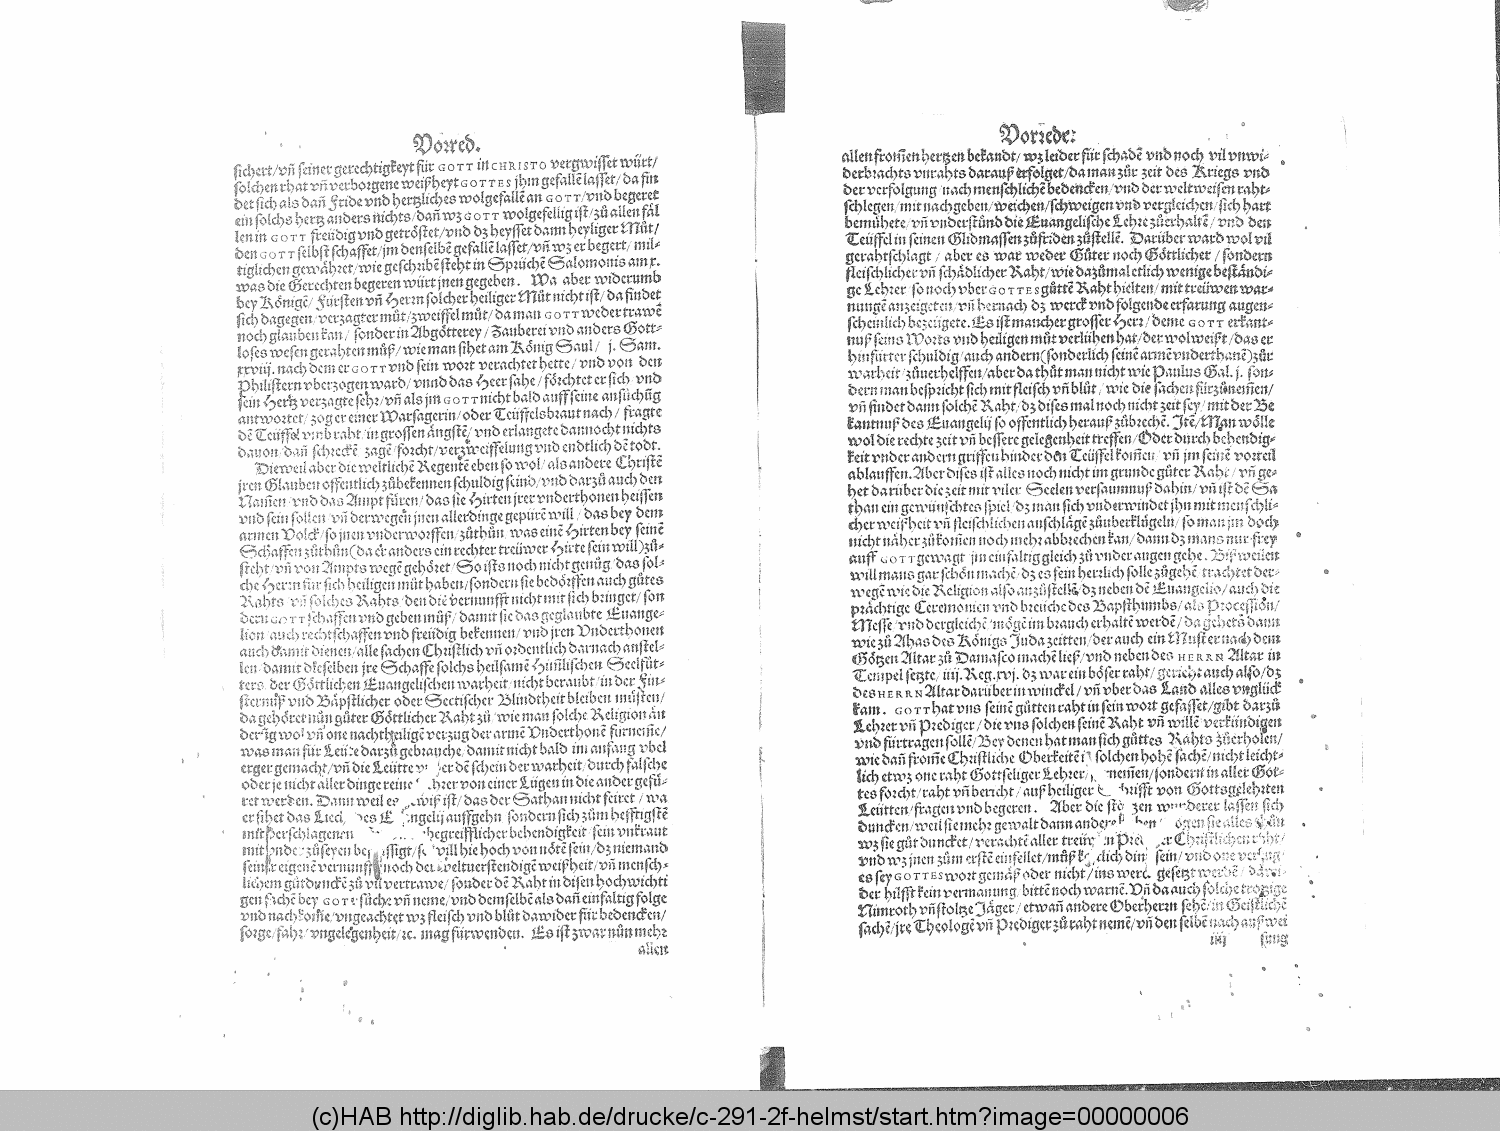 Vorred.
sichert/ vñ seiner gerechtigkeyt für GOTT in CHRISTO vergwisset würt/
solchen rhat vñ verborgene weißheyt GOTTES jhm gefallē lasset/ da fin
det sich als dañ Fride vnd hertzliches wolgefallē an GOTT/ vnd begeret
ein solchs hertz anders nichts/ dañ wz GOTT wolgefellig ist/ zů allen fäl
len in GOTT freüdig vnd getröstet/ vnd dz heysset dann heyliger Můt/
den GOTT selbst schaffet/ jm denselbē gefallē lasset/ vñ wz er begert/ mil-
tiglichen gewähret/ wie geschribē steht in Sprüchē Salomonis am x.
was die Gerechten begeren würt jnen gegeben. Wa aber widerumb
bey Königē/ Fürsten vñ Herrn solcher heiliger Můt nicht ist/ da findet
sich dagegen/ verzagter můt/ zweiffel můt/ da man GOTT weder trawē
noch glauben kan/ sonder in Abgötterey/ Zauberei vnd anders Gott-
loses wesen gerahten můß/ wie man sihet am König Saul/ j. Sam.
xxviij. nach dem er GOTT vnd sein wort verachtet hette/ vnd von den
Philistern vberzogen ward/ vnnd das Heer sahe/ förchtet er sich vnd
sein Hertz verzagte sehr/ vñ als jm GOTT nicht bald auff seine ansůchūg
antwortet/ zog er einer Warsagerin/ oder Teüffelsbraut nach/ fragte
dē Teüffel vmb raht/ in grossen ängstē/ vnd erlangete dannocht nichts
dauon/ dañ schreckē zagē/ forcht/ verzweiffelung vnd endtlich dē todt.
Dieweil aber die weltlichē Regentē eben so wol/ als andere Christē
jren Glauben offentlich zůbekennen schuldig seind/ vnd darzů auch den
Namen vnd das Ampt füren/ das sie Hirten jrer vnderthonen heissen
vnd sein sollen vñ derwegen jnen allerdinge gepürē will/ das bey dem
armen Volck/ so jnen vnderworffen/ zůthůn/ was einē Hirten bey seinē
Schaffen zůthůn (da er anders ein rechter treüwer Hirte sein will) zů-
steht/ vñ von Ampts wegē gehöret/ So ists noch nicht genůg/ das sol-
che Herrn für sich heiligen můt haben/ sondern sie bedörffen auch gůtes
Rahts vñ solches Rahts/ den die vernunfft nicht mit sich bringet/ son
dern GOTT schaffen vnd geben můß/ damit sie das geglaubte Euange-
lion auch rechtschaffen vnd freüdig bekennen/ vnd jren Vnderthonen
auch damit dienen/ alle sachen Christlich vñ ordentlich darnach anstel-
len/ damit dieselben jre Schaffe solchs heilsamē Himlischen Seelfůt-
ters der Göttlichen Euangelischen warheit/ nicht beraubt/ in der Fin-
sternüß vnd Bäpstlicher oder Sectischer Blindtheit bleiben müsten/
da gehöret nůn gůter Göttlicher Raht zů/ wie man solche Religion an
was man für Leüte darzů gebrauche/ damit nicht bald im anfang vbel
erger gemacht/ vñ die Leütte dē schein der warheit/ durch falsche
oder je nicht aller dinge reine von einer Lügen in die ander gefü-
ret werden. Dann weil es ist/ das der Sathan nicht feiret/ wa
er sihet das Lied auffgehn sondern sich zům hefftigste
mit begreifflicher behendigkeit sein vnkraut
will hie hoch von nötē sein/ dz niemand
seiner eigenē vernunfft noch weltuerstendigē weißheit/ vñ mensch-
lichem gůtdunckē zů vil vertrawe/ sonder dē Raht in disen hochwichti
gen sachē bey GOTT sůche vñ neme/ vnd demselbē als dañ einfaltig folge
vnd nachkome/ vngeachtet wz fleisch vnd blůt dawider für bedencken/
sorge/ fahr/ vngelegenheit/ ꝛc. mag fürwenden. Es ist zwar nůn mehr
allen
Vorrede:
allen from̄en hertzen bekandt/ wz leider für schadē vnd noch vil vnwi-
derbrachts vnrahts darauß erfolget/ da man zůr zeit des Kriegs vnd
der verfolgung/ nach menschlichē bedencken/ vnd der weltweisen raht-
schlegen/ mit nachgeben/ weichen/ schweigen vnd vergleichen/ sich hart
bemühete/ vñ vnderstůnd die Euangelische Lehre zůerhaltē/ vnd den
Teüffel in seinen Glidmassen zůfriden zůstellē. Darüber ward wol vil
gerahtschlagt/ aber es war weder Gůter noch Göttlicher/ sondern
fleischlicher vñ schädlicher Raht/ wie dazůmal etlich wenige bestandi-
ge Lehrer so noch vber GOTTES gůttē Raht hielten/ mit treüwen war-
nungē anzeigeten/ vñ hernach dz werck vnd folgende erfarung augen-
scheinlich bezeügete. Es ist mancher grosser Herr/ deme GOTT erkant-
nuß seins Worts vnd heiligen můt verlühen hat/ der wol weißt/ das er
hinfürter schuldig/ auch andern (sonderlich seinē armē vnderthanē) zůr
warheit/ zůuerhelffen/ aber da thůt man nicht wie Paulus Gal. j. son-
dern man bespricht sich mit fleisch vñ blůt/ wie die sachen fürzůnem̄en/
vñ findet dann solchē Raht/ dz dises mal noch nicht zeit sey/ mit der Be
kantnuß des Euangelij so offentlich herauß zůbrechē. Itē/ Man wölle
wol die rechte zeit vñ bessere gelegenheit treffen/ Oder durch behendig-
keit vnder andern griffen hinder den Teüffel kom̄en/ vñ jm seinē vorteil
ablauffen. Aber dises ist alles noch nicht im grunde gůter Raht/ vñ ge-
het darüber die zeit mit viler Seelen versaumnuß dahin/ vñ ist dē Sa
than ein gewünschtes spiel/ dz man sich vnderwindet jhn mit menschli-
cher weißheit vñ fleischlichen anschlägē zůüberklůgeln/ so man jm doch
nicht näher zůkom̄en noch mehr abbrechen kan/ dann dz mans nur frey
auff GOTT gewagt jm einfaltig gleich zů vnder augen gehe. Bißweilen
will mans gar schön machē/ dz es fein herrlich solle zůgehē/ trachtet der-
wegē wie die Religion also anzůstellē/ dz neben dē Euangelio/ auch die
prächtige Ceremonien vnd breüche des Bapsthumbs/ als Procession/
Messe vnd dergleichē mögē im brauch erhaltē werdē/ da gehets dann
wie zů Ahas des Königs Juda zeitten/ der auch ein Muster nach dem
Götzen Altar zů Damasco machē ließ/ vnd neben des HERRN Altar in
Tempel setzte/ iiij. Reg. xvj. dz war ein böser raht/ gericht auch also/ dz
des HERRN Altar darüber in winckel/ vñ vber das Land alles vnglück
kam. GOTT hat vns seinē gůtten raht in sein wort gefasset/ gibt darzů
Lehrer vñ Prediger/ die vns solchen seinē Raht vñ willē verkündigen
vnd fürtragen sollē/ Bey denen hat man sich gůttes Rahts zůerholen/
wie dañ from̄e Christliche Oberkeitē solchen hohē sachē/ nicht leicht-
lich etwz one raht Gottseliger Lehrer/ nemen/ sondern in aller Got-
tes forcht/ raht vñ bericht/ auß heiliger Schrifft von Gottsgelehrten
Leütten/ fragen vnd begeren. Aber die stoltzen lassen sich
duncken/ weil sie mehr gewalt dann andere sie alles
wz sie gůt duncket/ verachtē aller Christlichen raht/
vnd wz jnen zům erstē einfellet/ můß sein/ vnd one verzug
es sey GOTTES wort gemäß oder nicht/ ins werck gesetzt werdē/
der hilfft kein vermanung/ bitten noch warnē. Vñ da auch solche trotzige
Nimroth vñ stoltze Jäger/ etwañ andere Oberherrn sehē/ in Geistlichē
sachē/ jre Theologē vñ Prediger zů raht nemē/ vñ den selbē nach außwei
iij sung
(c)HAB http://diglib.hab.de/drucke/c-291-2f-helmst/start.htm?image=00000006